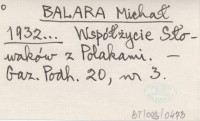 BALARA Michał
1932... Współżycie Sło-
waków z Polakami. –
Gaz. Podh. 20, nr 3.
BT/003/0473